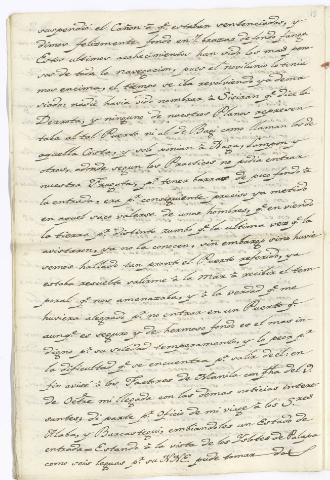 suspendió el Cañon á qe. estaban sentenciados, y
dimos felizmente fondo en 7 brazas de lindo fango
Estos ultimos acahecimientos han sido los mas peno-
sos de toda la navegacion, pues el novilunio lo tenia-
mos encima, el tiempo se iba revolviendo ya dema-
siado, nadie havia oido nombrar á qe. dice la
Derrota, y ninguno de nuestros Planos representa-
taba tal Puerto ni al de como llaman los de
aquella Costa, y solo ponian á
otros, adonde segun los Practicos no podia entrar
nuestra Fragata, pr. tener barra de poco fondo á
la entrada, era pr. consiguiente preciso ya metido
en aquel saco valerse de unos hombres, qe. en viendo
la tierra pr. distinto rumbo qe. la ultima vez qe. la
avistaron, ya no la conocen, sin embargo si no huvie-
semos hallado tan pronto el Puerto referido, ya
estaba resuelto salirme á la mar á recibir el tem-
poral qe. nos amenazaba, y á la verdad qe. me
huviera alegrado pr. no entrar en un Puerto qe.
aunqe. es seguro y de hermoso fondo es el mas in-
digno pr. su soledad temperamento, y lo peor pr.
la dificultad qe. se encuentra pa. salir de el; en
fin avisé á los Factores de Manila con fha. del 9
de Octre. mi llegada con las demas noticias intere-
santes, di parte pr. Oficio de mi viage á los Sres.
Alaba, y embiandoles un Estado de
entrada Estando á la vista de los Islotes de
como seis leguas pr. su N.N.E. pude tomar